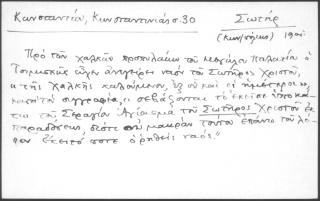 Κωνσταντιάς, Κωνσταντινιάς σ. 30 Σωτήρ
(Κων/πόλις) 190
Πρὸ τῶν χαλκῶν προπυλαίων τοῦ Μεγάλου Παλατίου ὁ
Τσιμισκῆς εἶχεν ἀνεγείρει ναὸν τοῦ Σωτῆρος Χριστοῦ,
τῆς Χαλκῆς καλούμενον, ἐξ οὗ καὶ οἱ ἡμέτεροι,
συγγραφεῖς, σεβάζονται τὸ ἐκεῖσε
τοῦ Σεραγίου Ἁγίασμα τοῦ Σωτῆρος Χριστοῦ ἐκ
παραδόσεως, διότι οὐ μακρὰν τούτου ἐπάνω τοῦ λό-
φου ἔκειτό ποτε ὁ ῥηθεὶς ναός."